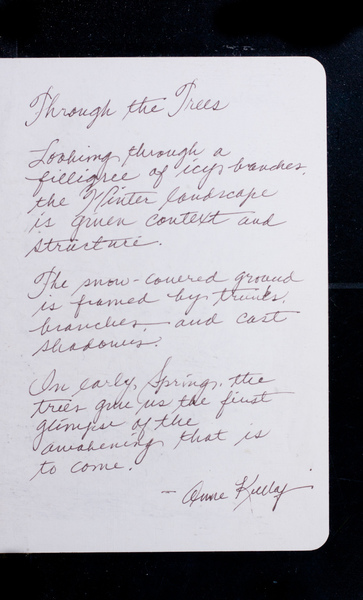 Through the Trees
Looking through a
filligree of icy branches,
the Winter landscape
is given context and
structure.
The snow-covered ground
is framed by trunks,
branches, and cast
shadows.
In early Spring, the
trees give us the first
glimpse of the
awakening that is
to come.
- Anne